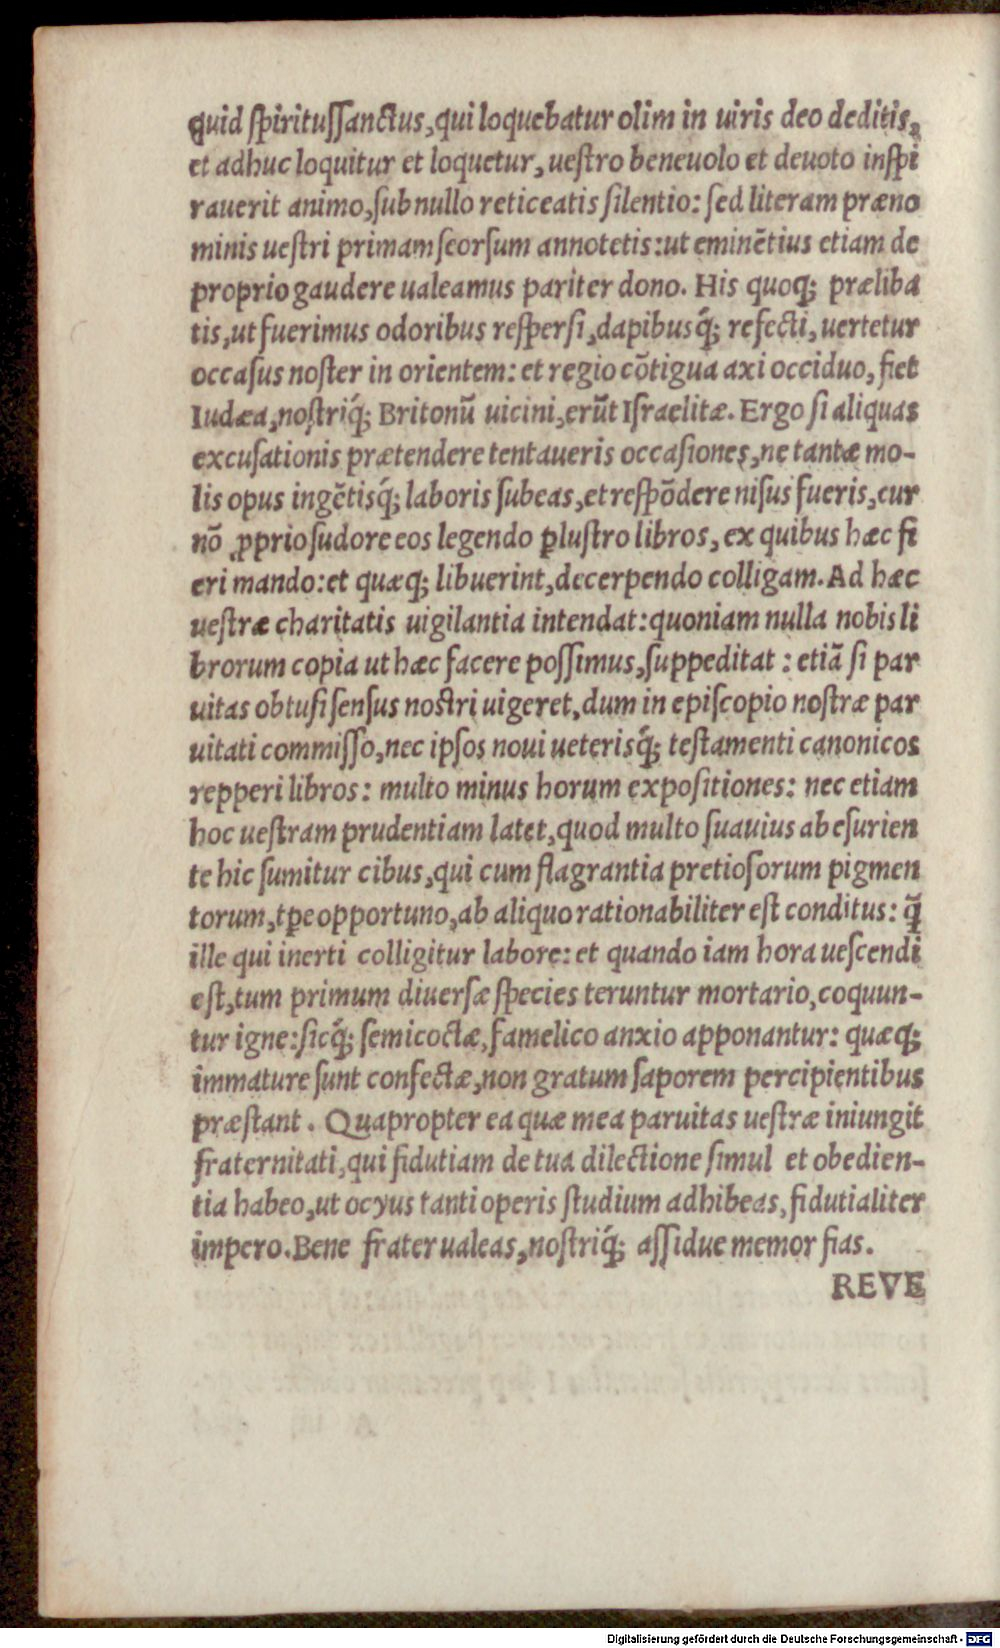 quid ſpirituſſanctus, qui loquebatur olim in uiris deo deditis,
et adhuc loquitur et loquetur, ueſtro beneuolo et deuoto inſpi
rauerit animo, ſub nullo reticeatis ſilentio: ſed literam præno
minis ueſtri primam ſeorſum annotetis: ut eminētius etiam de
proprio gaudere ualeamus pariter dono. His quoq; præliba
tis, ut fuerimus odoribus reſperſi, dapibusq́; refecti, uertetur
occaſus noſter in orientem: et regio cōtigua axi occiduo, fiet
Iudæa, noſtriq́; Britonū uicini, erūt Iſraelitæ. Ergo ſi aliquas
excuſationis prætendere tentaueris occaſiones, ne tantæ mo-
lis opus ingētisq́; laboris ſubeas, et reſpōdere niſus fueris, cur
nō ꝓprio ſudore eos legendo ꝑluſtro libros, ex quibus hæc fi
eri mando: et quæq; libuerint, decerpendo colligam. Ad hæc
ueſtræ charitatis uigilantia intendat: quoniam nulla nobis li
brorum copia ut hæc facere poſſimus, ſuppeditat: etiā ſi par
uitas obtuſi ſenſus noſtri uigeret, dum in epiſcopio noſtræ par
uitati commiſſo, nec ipſos noui ueterisq́; teſtamenti canonicos
repperi libros: multo minus horum expoſitiones: nec etiam
hoc ueſtram prudentiam latet, quod multo ſuauius ab eſurien
te hic ſumitur cibus, qui cum flagrantia pretioſorum pigmen
torum, tp̄e opportuno, ab aliquo rationabiliter eſt conditus: q̄̃
ille qui inerti colligitur labore: et quando iam hora ueſcendi
eſt, tum primum diuerſæ ſpecies teruntur mortario, coquun-
tur igne: ſicq́; ſemicoctæ, famelico anxio apponantur: quæq;
immature ſunt confectæ, non gratum ſaporem percipientibus
præſtant. Quapropter ea quæ mea paruitas ueſtræ iniungit
fraternitati, qui fidutiam de tua dilectione ſimul et obedien-
tia habeo, ut ocyus tanti operis ſtudium adhibeas, fidutialiter
impero. Bene frater ualeas, noſtriq́; aſſidue memor fias.
REVE
Digitalisierung gefördert durch die Deutsche Forschungsgemeinschaft - DFG